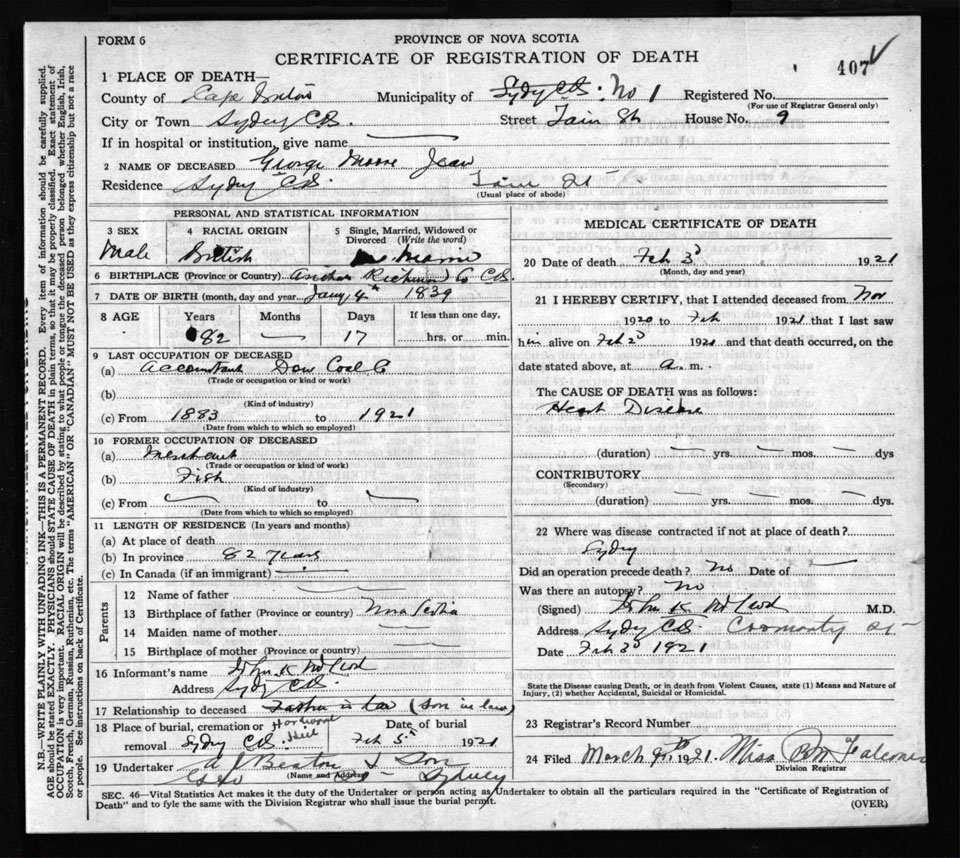 FORM 6
PROVINCE OF NOVA SCOTIA
CERTIFICATE OF REGISTRATION OF DEATH
407
1 PLACE OF DEATH—
County of Cape Breton Municipality of Sydy C.B. No 1 Registered No.
(For use of Registrar General only)
City or Town Sydney C.B. Street House No. 9
If in hospital or institution, give name
2 NAME OF DECEASED George Moore Jean
Residence Sydy CB
(Usual place of abode)
PERSONAL AND STATISTICAL INFORMATION
3 SEX Male
4 RACIAL ORIGIN British
5 Single, Married, Widowed or Divorced (Write the word)
6 BIRTHPLACE (Province or Country) Richmond Co C.B.
7 DATE OF BIRTH (month, day and year Jany 4th 1839
8 AGE Years Months Days If less than one day,
82 — 17 hrs. or min.
9 LAST OCCUPATION OF DECEASED
(a) Accountant Dom Coal Co
(Trade or occupation or kind of work)
(b)
(Kind of industry)
(c) From 1883 to 1921
(Date from which to which so employed)
10 FORMER OCCUPATION OF DECEASED
(a) Merchant
(Trade or occupation or kind of work)
(b) Fish
(Kind of industry)
(c) From to
(Date from which to which so employed)
11 LENGTH OF RESIDENCE (In years and months)
(a) At place of death
(b) In province 82 years
(c) In Canada (if an immigrant)
Parents
12 Name of father
13 Birthplace of father (Province or country) Nova Scotia
14 Maiden name of mother
15 Birthplace of mother (Province or country)
16 Informant's name John K McLeod
Address Sydy CB
17 Relationship to deceased Father in law (son in law)
18 Place of burial, cremation or Hardwood Hill Date of burial
removal Sydy CB. Feb 5th 1921
19 Undertaker A J Beaton & Son
(Name and Address) Sydney
MEDICAL CERTIFICATE OF DEATH
20 Date of Death Feb 3d 1921
(Month, day and year)
21 I HEREBY CERTIFY, that I attended deceased from Nov
1920 to Feb 1921 that I last saw
him alive on Feb 2d 1921 and that death occurred, on the
date stated above, at a. m.
The CAUSE OF DEATH was as follows:
Heart Disease
(duration) — yrs. — mos. — dys
CONTRIBUTORY
(Secondary)
(duration) — yrs. — mos. — dys.
22 Where was disease contracted if not at place of death?
Sydny
Did an operation precede death? No Date of —
Was there an autopsy? No
(Signed) John K McLeod M.D.
Address Sydy CB
Date Feb 3d 1921
State the Disease causing Death, or in death from Violent Causes, state (1) Means and Nature of
Injury, (2) whether Accidental, Suicidal or Homicidal.
23 Registrar's Record Number
24 Filed March 9th 1921 Miss Falconer
Division Registrar
SEC. 46—Vital Statistics Act makes it the duty of the Undertaker or person acting as Undertaker to obtain all the particulars required in the "Certificate of Registration of
Death" and to fyle the same with the Division Registrar who shall issue the burial permit. (OVER)
N.B.—WRITE PLAINLY WITH UNFADING INK—THIS IS A PERMANENT RECORD. Every item of information should be carefully supplied.
AGE should be stated EXACTLY. PHYSICIANS should STATE CAUSE OF DEATH in plain terms, so that it may be properly classified. Exact statement of
OCCUPATION is very important. RACIAL ORIGIN will be described by stating to what people or tongue the deceased person belonged whether English, Irish,
Scotch, French, German, Russian, Ruthenian, etc. The terms "AMERICAN" OR "CANADIAN" MUST NOT BE USED as they express citizenship but not a race
or people. See instructions on back of Certificate.